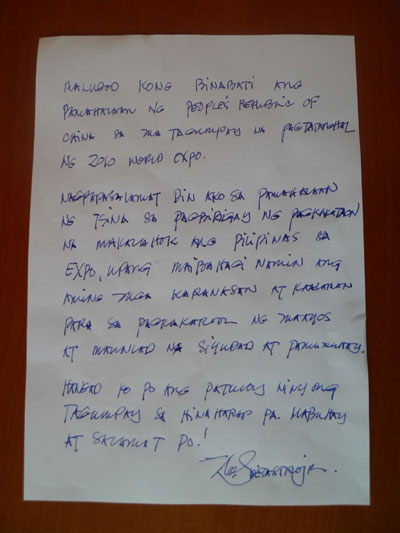 MALUGOD KONG BINABATI ANG
PAMAHALAAN NG PEOPLE'S REPUBLIC OF
CHINA SA MATAGUMPAY NA PAGTATANGHAL
NG 2010 WORLD EXPO.
NAGPAPASALAMAT DIN AKO SA PAMAHALAAN
NG TSINA SA PAGBIBIGAY NG PAGKAKATAON
NA MAKALAHOK ANG PILIPINAS SA
EXPO, UPANG MAIBAHAGI NAMIN ANG
AMING MGA KARANASAN AT KAALAMAN
PARA SA PAGKAKAROON NG MAAYOS
AT MAUNLAD NA SIYUDAD AT PAMUMUHAY.
HANGAD KO PO ANG PATULOY NINYONG
TAGUMPAY SA HINAHARAP PA. MABUHAY
AT SALAMAT PO!